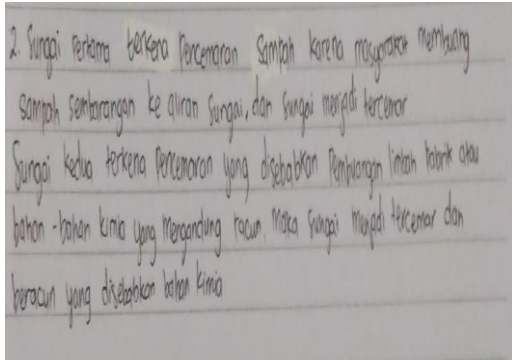 2. Sungai Pertama terkena Pencemaran Sampah karena masyarakat membuang
sampah sembarangan ke aliran sungai, dan sungai menjadi tercemar
Sungai kedua terkena Pencemaran yang disebabkan Pembuangan limbah Pabrik atau
bahan-bahan kimia yang mengandung racun. Maka sungai menjadi tercemar dan
beracun yang disebabkan bahan kimia